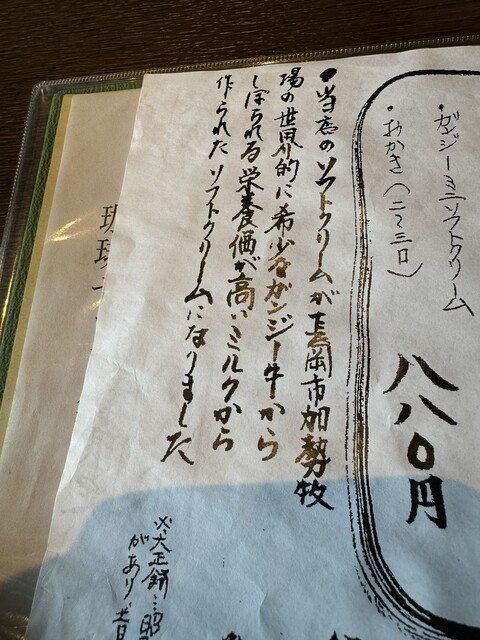 ・ガンジーミニソフトクリーム
・おかき(二〜三口)
八八〇円
●当店のソフトクリームが長岡市加勢牧
場の世界的に希少なガンジー牛から
しぼられる栄養価が高いミルクから
作られたソフトクリームになりました
※大正餅
があり昔
珈琲